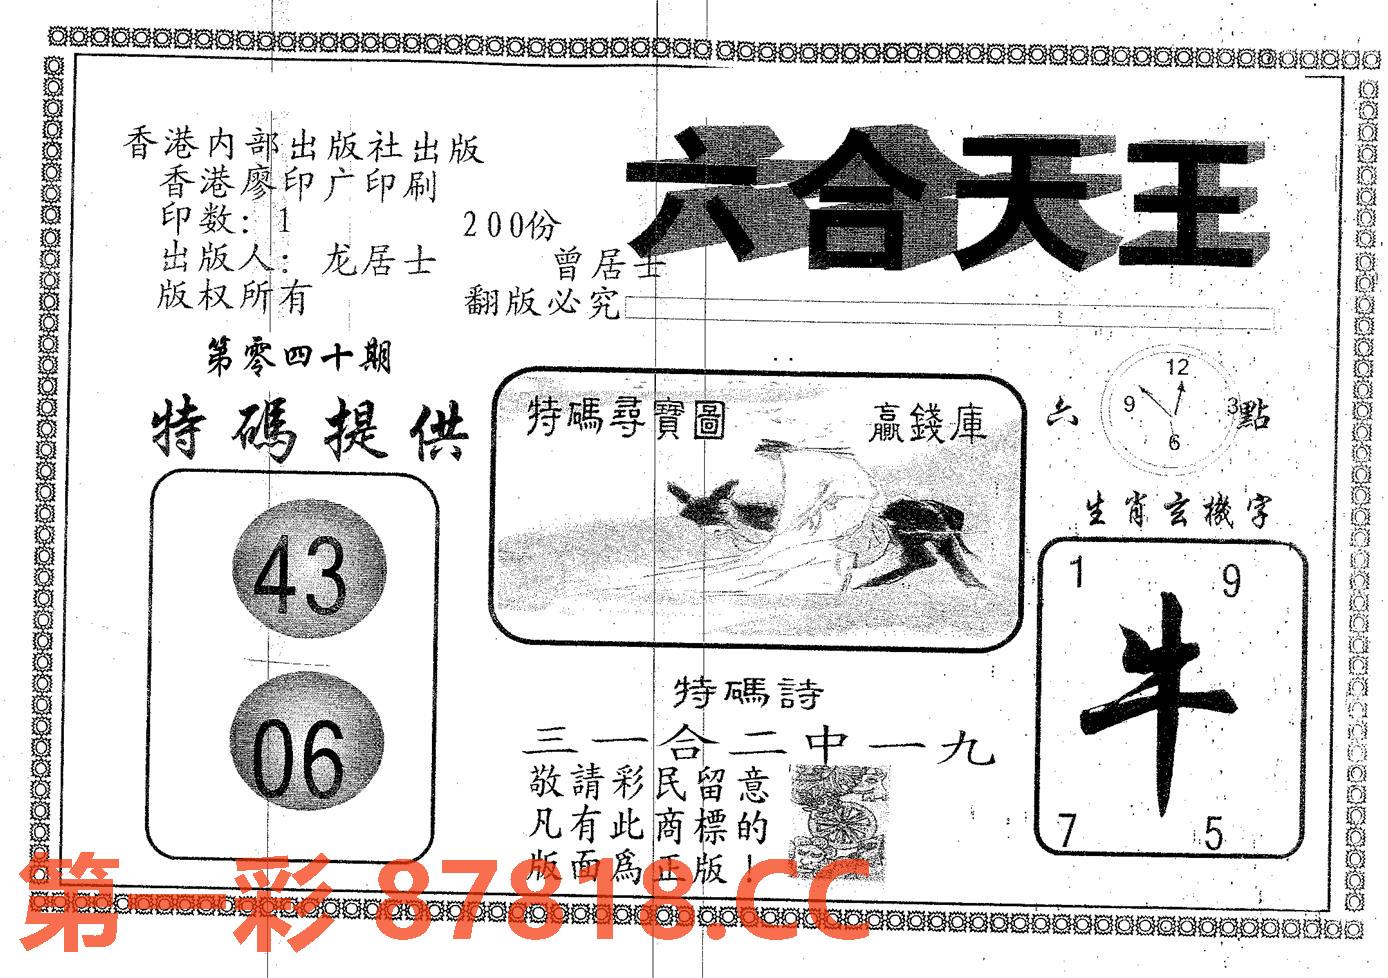 香港内部出版社出版
香港廖印广印刷
印数：1 200份
出版人：龙居士 曾居士
版权所有 翻版必究
六合天王
第零四十期
特碼提供
43
06
特碼尋寶圖 贏錢庫
六 12 3 6 9 點
生肖玄機字
1 9
牛
7 5
特碼詩
三一合二中一九
敬請彩民留意
凡有此商標的
版面爲正版！
第一彩 87818.CC